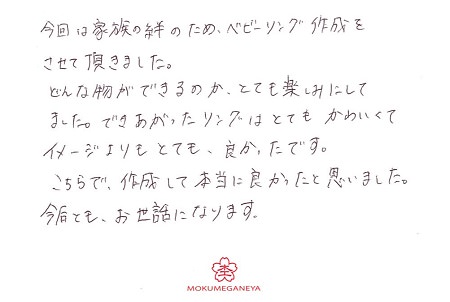 今回は家族の絆のため、ベビーリング作成を
させて頂きました。
どんな物ができるのか、とても楽しみにして
ました。できあがったリングはとてもかわいくて
イメージよりもとても、良かったです。
こちらで、作成して本当に良かったと思いました。
今后とも、お世話になります。
MOKUMEGANEYA